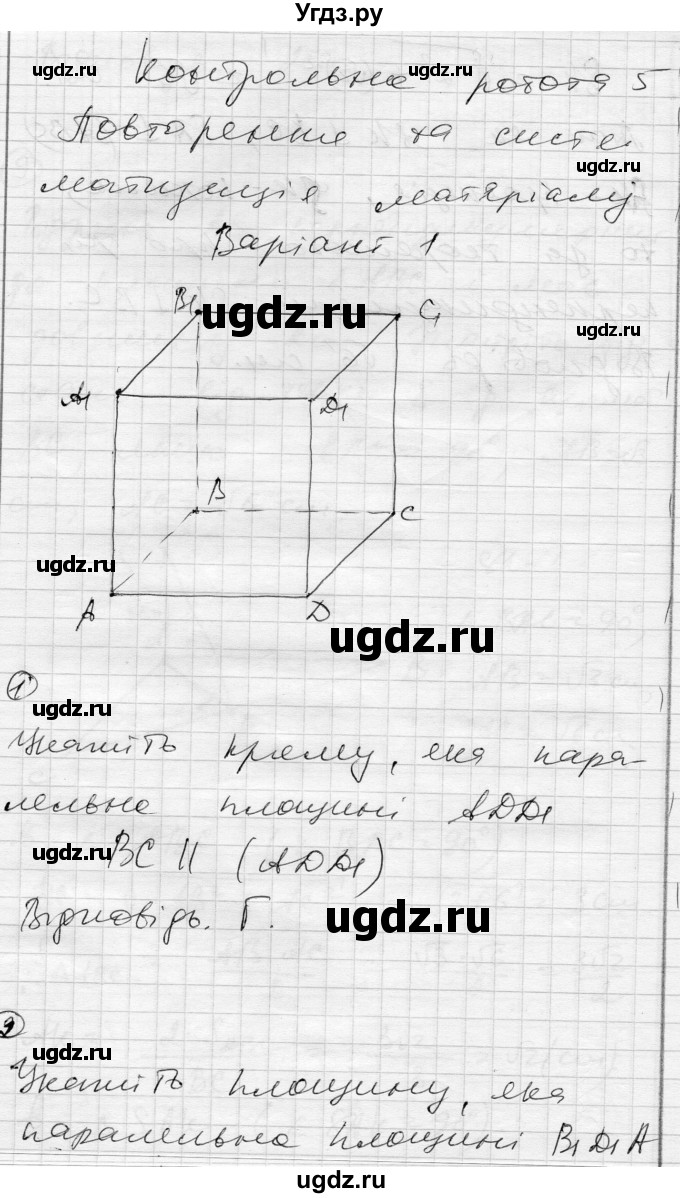 Угдз.ру
ugdz.ru ugdz.ru
Контрольна робота 5
Повторення та систе
ugdz.ru
матизація матеріалу
Варіант 1
B₁ ugdz.ru C₁ ugdz.ru
A₁ D₁
B C
ugdz.ru
A D
ugdz.ru
1
ugdz.ru
Укажіть пряму, яка пара-
лельна площині ADD₁
ugdz.ru BC || (ADD₁)
Відповідь. Г. ugdz.ru
2
ugdz.ru
Укажіть площину, яка
паралельна площині B₁D₁A
ugdz.ru ugdz.ru